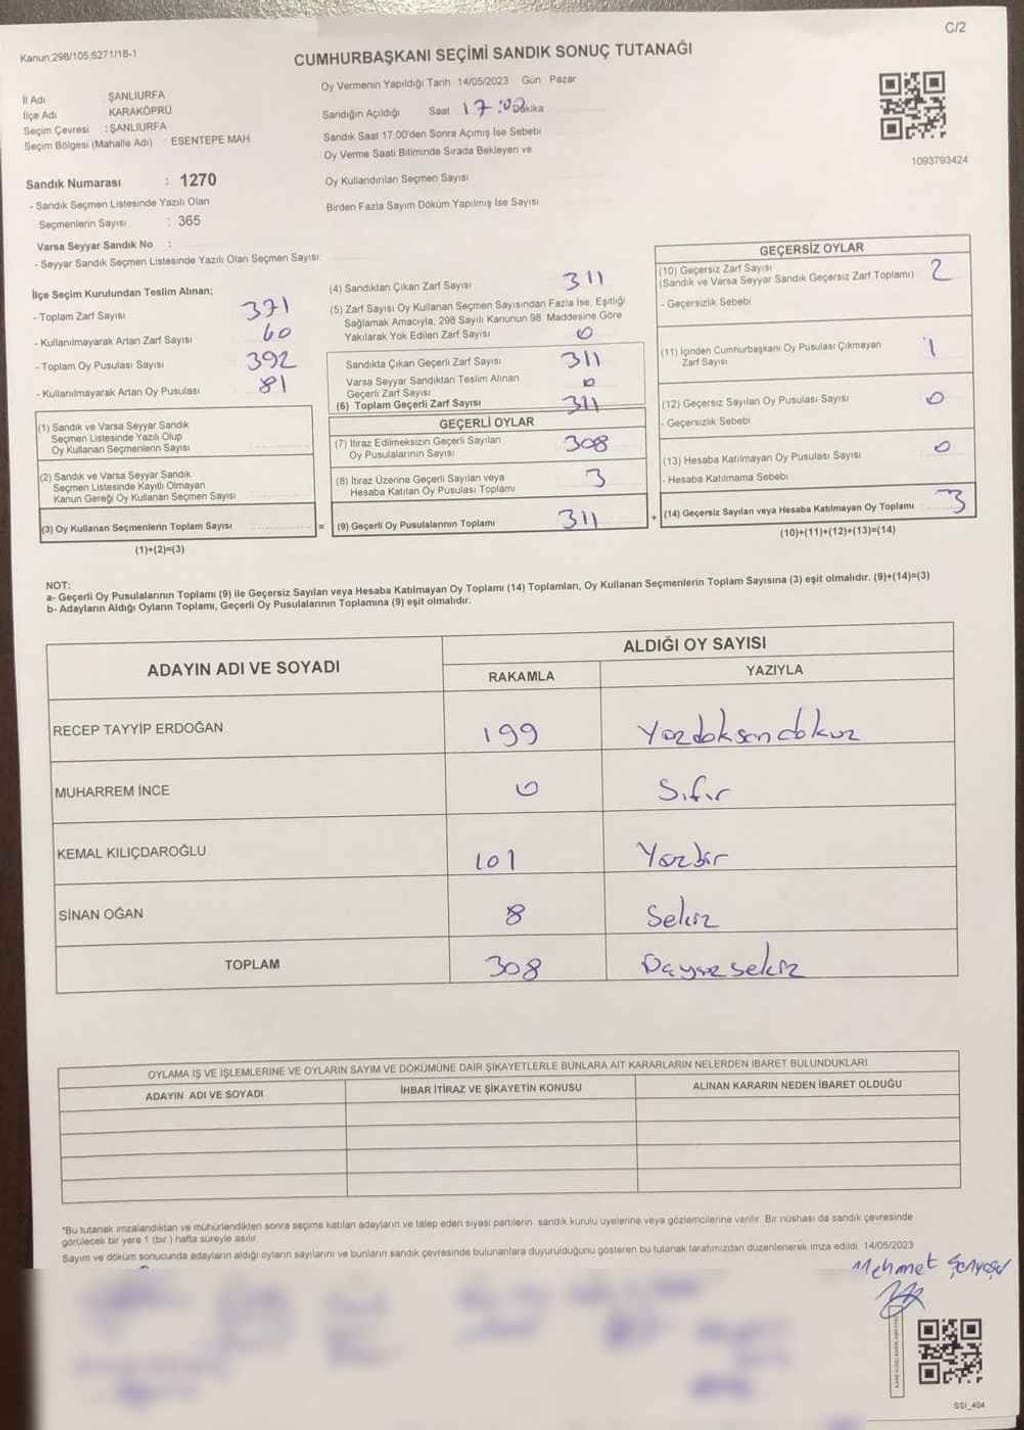 C/2
Kanun:298/105;6271/18-1
CUMHURBAŞKANI SEÇİMİ SANDIK SONUÇ TUTANAĞI
İl Adı ŞANLIURFA
İlçe Adı KARAKÖPRÜ
Seçim Çevresi : ŞANLIURFA
Seçim Bölgesi (Mahalle Adı) ESENTEPE MAH
Oy Vermenin Yapıldığı Tarih 14/05/2023 Gün Pazar
Sandığın Açıldığı Saat 17:00 Dakika
Sandık Saat 17.00'den Sonra Açılmış İse Sebebi
Oy Verme Saati Bitiminde Sırada Bekleyen ve
Oy Kullandırılan Seçmen Sayısı
Birden Fazla Sayım Döküm Yapılmış İse Sayısı
1093793424
Sandık Numarası : 1270
- Sandık Seçmen Listesinde Yazılı Olan
Seçmenlerin Sayısı : 365
Varsa Seyyar Sandık No :
- Seyyar Sandık Seçmen Listesinde Yazılı Olan Seçmen Sayısı:
İlçe Seçim Kurulundan Teslim Alınan;
- Toplam Zarf Sayısı 371
- Kullanılmayarak Artan Zarf Sayısı 60
- Toplam Oy Pusulası Sayısı 392
- Kullanılmayarak Artan Oy Pusulası 81
(1) Sandık ve Varsa Seyyar Sandık
Seçmen Listesinde Yazılı Olup
Oy Kullanan Seçmenlerin Sayısı
(2) Sandık ve Varsa Seyyar Sandık
Seçmen Listesinde Kayıtlı Olmayan
Kanun Gereği Oy Kullanan Seçmen Sayısı
(3) Oy Kullanan Seçmenlerin Toplam Sayısı =
(1)+(2)=(3)
(4) Sandıktan Çıkan Zarf Sayısı 311
(5) Zarf Sayısı Oy Kullanan Seçmen Sayısından Fazla İse, Eşitliği
Sağlamak Amacıyla, 298 Sayılı Kanunun 98. Maddesine Göre
Yakılarak Yok Edilen Zarf Sayısı 0
Sandıkta Çıkan Geçerli Zarf Sayısı 311
Varsa Seyyar Sandıktan Teslim Alınan
Geçerli Zarf Sayısı 0
(6) Toplam Geçerli Zarf Sayısı 311
GEÇERLİ OYLAR
(7) İtiraz Edilmeksizin Geçerli Sayılan
Oy Pusulalarının Sayısı 308
(8) İtiraz Üzerine Geçerli Sayılan veya
Hesaba Katılan Oy Pusulası Toplamı 3
(9) Geçerli Oy Pusulalarının Toplamı 311 +
GEÇERSİZ OYLAR
(10) Geçersiz Zarf Sayısı
(Sandık ve Varsa Seyyar Sandık Geçersiz Zarf Toplamı) 2
- Geçersizlik Sebebi
(11) İçinden Cumhurbaşkanı Oy Pusulası Çıkmayan
Zarf Sayısı 1
(12) Geçersiz Sayılan Oy Pusulası Sayısı 0
- Geçersizlik Sebebi
(13) Hesaba Katılmayan Oy Pusulası Sayısı 0
- Hesaba Katılmama Sebebi
(14) Geçersiz Sayılan veya Hesaba Katılmayan Oy Toplamı 3
(10)+(11)+(12)+(13)=(14)
NOT:
a- Geçerli Oy Pusulalarının Toplamı (9) ile Geçersiz Sayılan veya Hesaba Katılmayan Oy Toplamı (14) Toplamları, Oy Kullanan Seçmenlerin Toplam Sayısına (3) eşit olmalıdır. (9)+(14)=(3)
b- Adayların Aldığı Oyların Toplamı, Geçerli Oy Pusulalarının Toplamına (9) eşit olmalıdır.
ADAYIN ADI VE SOYADI ALDIĞI OY SAYISI
RAKAMLA YAZIYLA
RECEP TAYYİP ERDOĞAN 199 Yüzdoksandokuz
MUHARREM İNCE 0 Sıfır
KEMAL KILIÇDAROĞLU 101 Yüzbir
SİNAN OĞAN 8 Sekiz
TOPLAM 308 Üçyüzsekiz
OYLAMA İŞ VE İŞLEMLERİNE VE OYLARIN SAYIM VE DÖKÜMÜNE DAİR ŞİKAYETLERLE BUNLARA AİT KARARLARIN NELERDEN İBARET BULUNDUKLARI
ADAYIN ADI VE SOYADI İHBAR İTİRAZ VE ŞİKAYETİN KONUSU ALINAN KARARIN NEDEN İBARET OLDUĞU
*Bu tutanak imzalandıktan ve mühürlendikten sonra seçime katılan adayların ve talep eden siyasi partilerin, sandık kurulu üyelerine veya gözlemcilerine verilir. Bir nüshası da sandık çevresinde
görülecek bir yere 1 (bir) hafta süreyle asılır.
Sayım ve döküm sonucunda adayların aldığı oyların sayılarını ve bunların sandık çevresinde bulunanlara duyurulduğunu gösteren bu tutanak tarafımızdan düzenlenerek imza edildi. 14/05/2023
Mehmet Şenyaşar
SSI_404